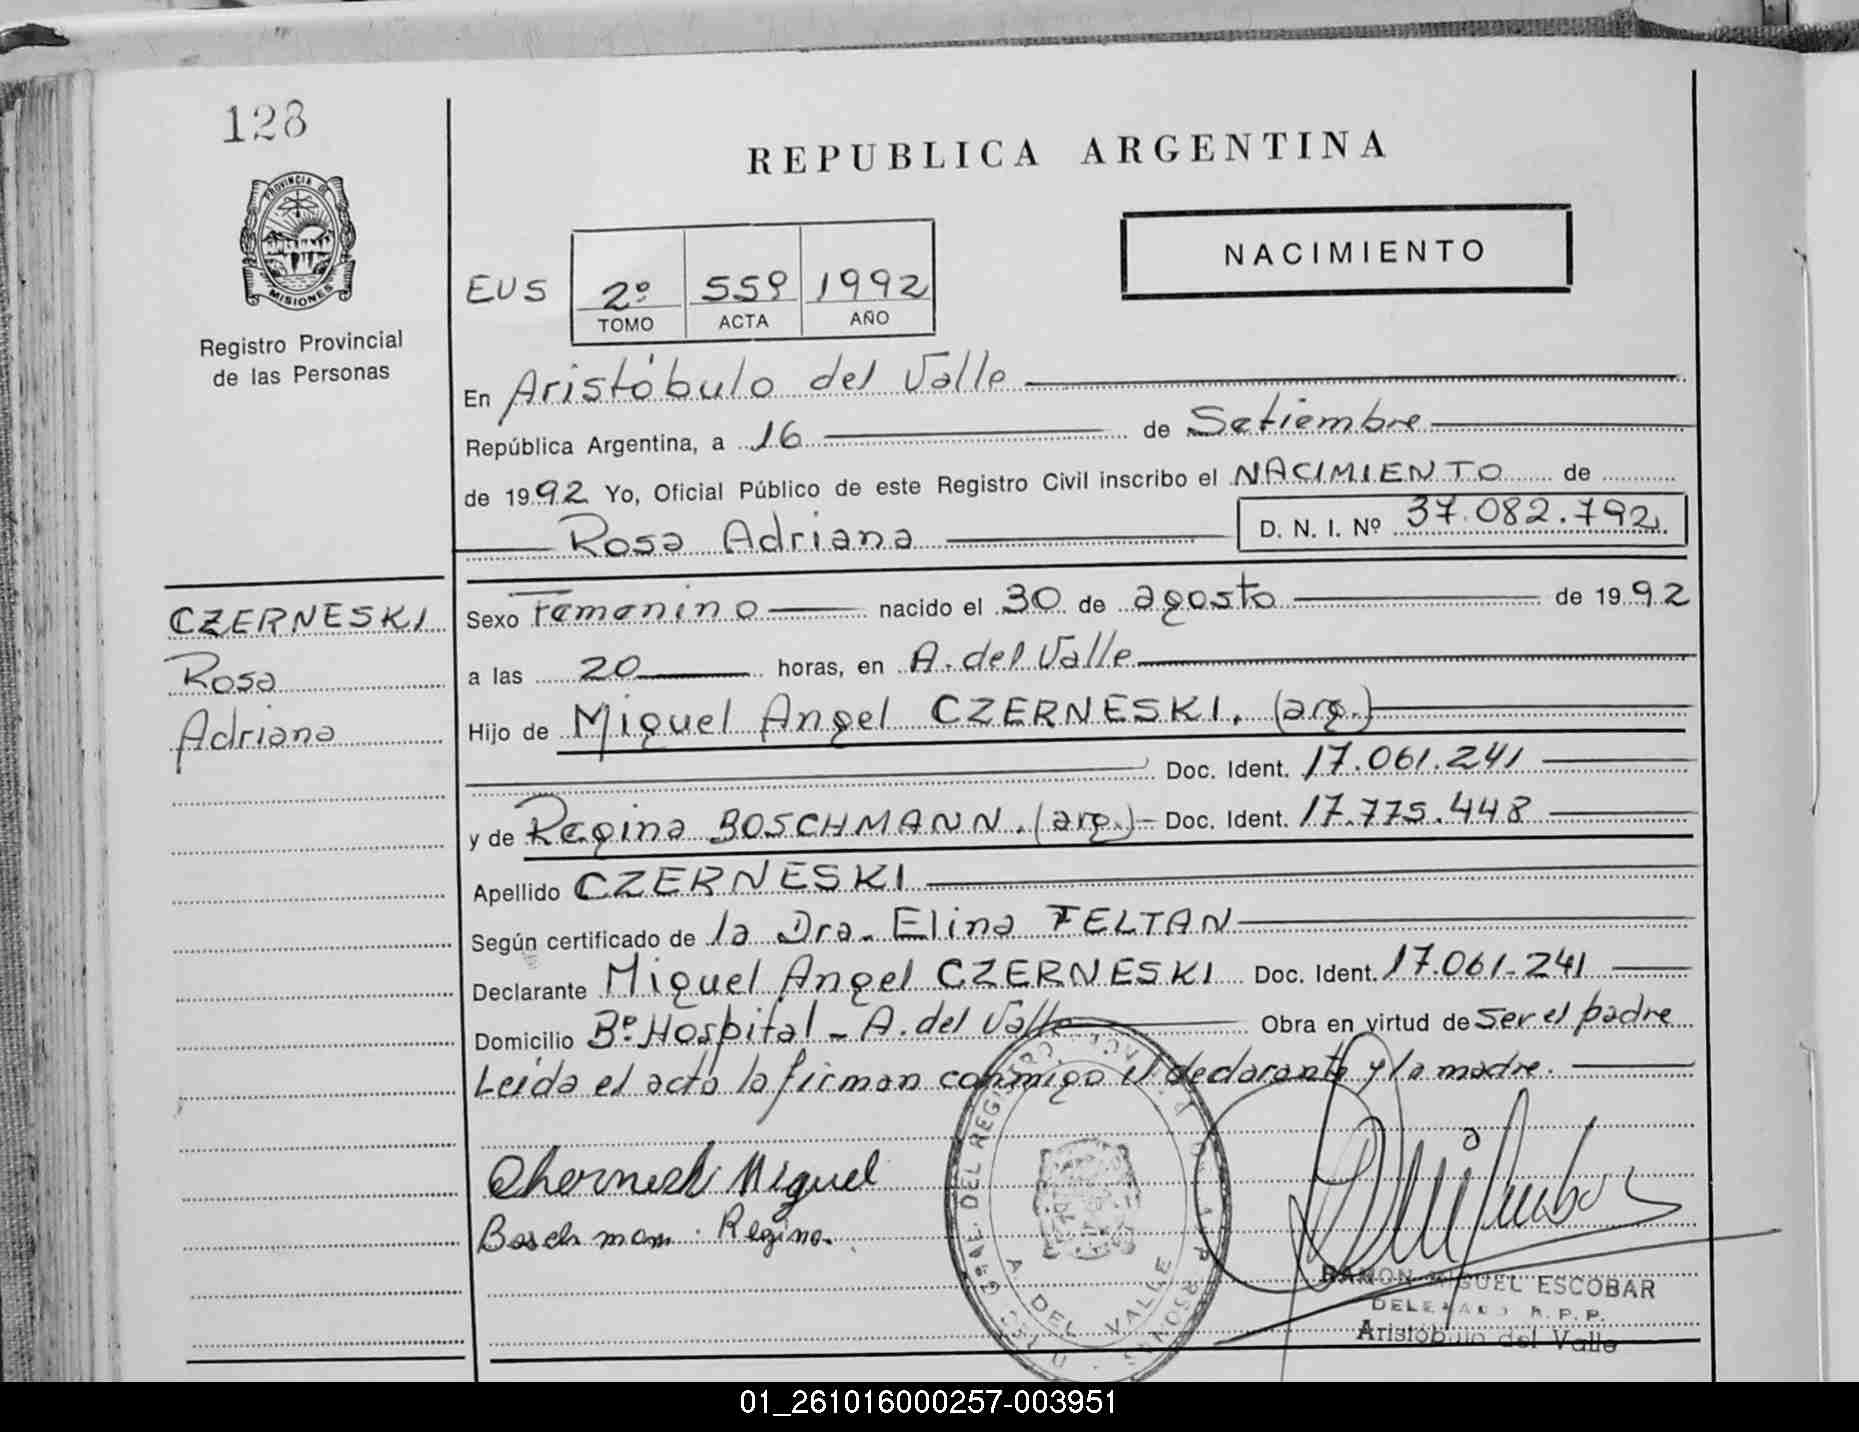 128
REPUBLICA ARGENTINA
PROVINCIA DE
MISIONES
Registro Provincial
de las Personas
NACIMIENTO
EUS 2º 559 1992
TOMO ACTA AÑO
En Aristóbulo del Valle
República Argentina, a 16 de Setiembre
de 1992 Yo, Oficial Público de este Registro Civil inscribo el NACIMIENTO de
Rosa Adriana D. N. I. Nº 37.082.792
CZERNESKI
Rosa
Adriana
Sexo Femenino nacido el 30 de agosto de 1992
a las 20 horas, en A. del Valle
Hijo de Miguel Angel CZERNESKI. (arg.)
Doc. Ident. 17.061.241
y de Regina BOSCHMANN. (arg.) Doc. Ident. 17.775.448
Apellido CZERNESKI
Según certificado de la Dra. Elina FELTAN
Declarante Miguel Angel CZERNESKI Doc. Ident. 17.061-241
Domicilio Bº Hospital - A. del Valle Obra en virtud de ser el padre
Leída el acta la firman conmigo el declarante y la madre.
Miguel
Regina
A. DEL VALLE
RAMON MIGUEL ESCOBAR
DELEGADO R.P.P.
Aristóbulo del Valle
01_261016000257-003951